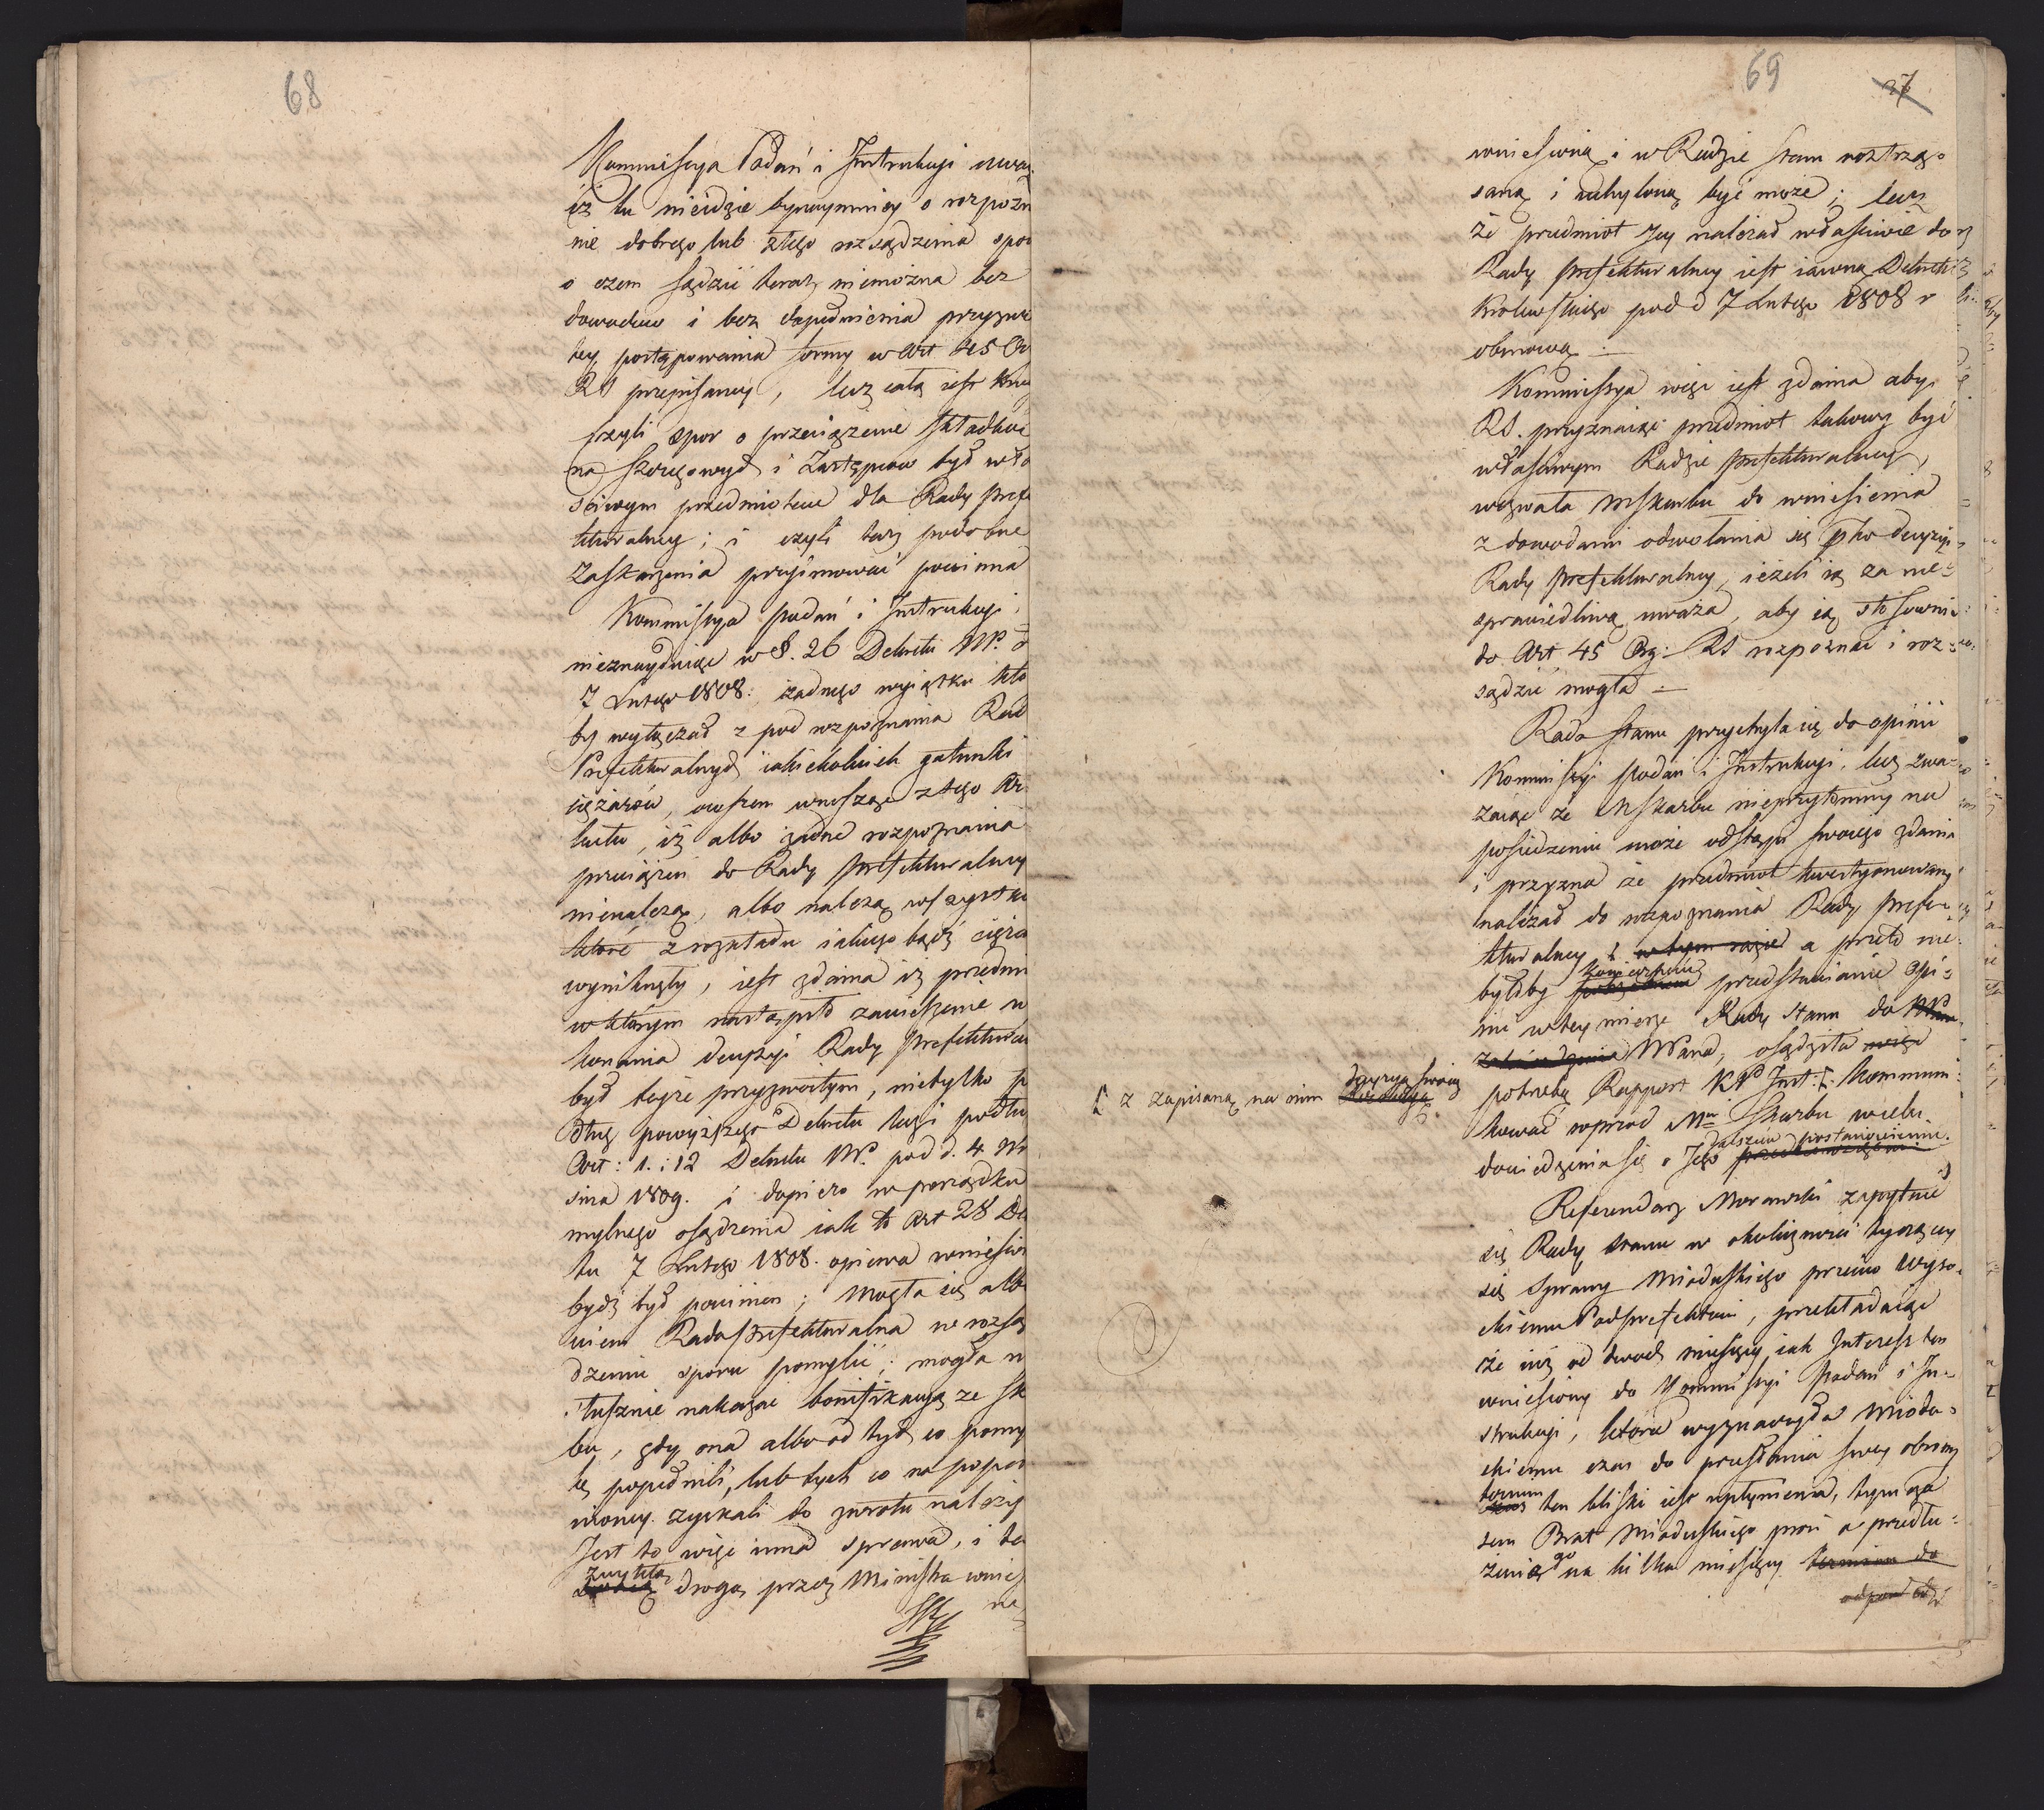 68
Kommissya Podań i Instrukcji uwa
iż tu nieidzie bynaymniey o rozpozn
nie dobrego lub złego rozsądzenia spo
o czem sądzić teraz niemożna bez
dowodow i bez dopełnienia przyzwo
tey postępowania formy w Art 45 Or
RS przepisaney, lecz cała iest
czyli spor o przeciążenie składkow
na Szeregowych i Zastępcow był wła
ściwym przedmiotem dla Rady prefe
kturalney; i czyli taż podobne
Zaskarżenia przyimować powinna
Kommissya podań i Instrukcji,
nieznayduiąc w §. 26 Dekretu NP. d
7 Lutego 1808. żadnego wyiątku kto
by wyłączał z pod rozpoznania Rad
Prefekturalnych iakichkolwiek gatunki
ciężarów, owszem wnosząc z tego Ar
kułu, iż albo żadne rozpoznania
przeciążeń do Rady prefekturalney
nienależą, albo należą wszystkie
które z rozkładu iakiego bądź cięża
wyniknęły, iest zdania iż przedmi
w którym nastąpiło zawieszenie wy
konania decyzyi Rady Prefektural
był teyże przyzwoitym, nietylko p
dług powyższego Dekretu lecz i podłu
Art: 1. i 12 Dekretu NP. pod d. 4 M
sina 1809. i dopiero w porządku
mylnego osądzenia iak to Art 28 De
tu 7 Lutego 1808. opiewa wniesion
bydź był powinien; Mogła się albo
wiem Rada Prefekturalna w rozsą
dzeniu sporu pomylić; mogła n
słusznie nakazać bonifikacyą ze sk
bu, gdy ona albo od tych co pomy
łkę popełnili, lub tych co na popeł
nioney zyskali do zwrotu należy
Jest to więc inna sprawa, i ta
zwykłą
drogą przez Ministra wnie
na
69
37
wniesioną i w Radzie Stanu roztrzą-
saną i uchyloną być może; lecz
że przedmiot Jey należał właściwie do
Rady prefekturalney iest iawną Dekretu
Krolewskiego pod d 7 Lutego 1808 r
obmową.
Kommissya więc iest zdania aby
RS. przyznaiąc przedmiot takowy być
właściwym Radzie prefekturalney,
wezwała MSkarbu do wniesienia
z dowodami odwołania się pko decyzyi
Rady prefekturalney, ieżeli ią za nie-
sprawiedliwą uważa, aby ią stosownie
do Art 45 Org: RS rozpoznać i roz-
sądzić mogła.
Rada Stanu przychyla się do opinii
Kommissyi podań i Instrukcyi, lecz zwa-
żaiąc że MSkarbu nieprzytomny na
posiedzeniu może odstąpi swoiego zdania
i przyzna że przedmiot kwestyonowany
należał do rozpoznania Rady prefe-
kturalney i w tym razie a przeto nie
koniecznie
byłoby potrzebnem przedstawianie Opi-
nii w tey mierze Rady Stanu do NPa
NPana, osądziła więc
potrzebę Rapport KP Inst: [ kommuni-
kować wprzod Mwi Skarbu wcelu
dalszem postanowieniu.
dowiedzenia się o Jego
[ z zapisaną na nim
decyzyą swoią
Referendarz Morawski zapytuie
się Rady Stanu w okoliczności tyczącey
się sprawy Mioduskiego przeciw Wyso-
ckiemu Podprefektowi, przekładaiąc
że iuż od dwoch miesięcy iak Interess ten
wniesiony do Kommissyi Podań i In-
strukcji, która wyznaczyła Miodu-
skiemu czas do przesłania swey obrony
termin
czas ten bliski iest upłynienia, tym cza
sem Brat Mioduskiego prosi o przedłu-
żenie go na kilka miesięcy termin do
odpowiedzi